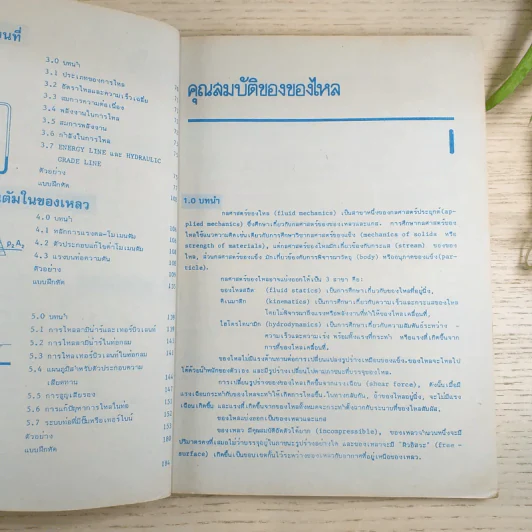 3.0 บทนำ
3.1 ประเภทของการไหล
3.2 อัตราไหลและความเร็วเฉลี่ย
3.3 สมการความต่อเนื่อง
3.4 พลังงานในการไหล
3.5 สมการพลังงาน
3.6 กำลังในการไหล
3.7 ENERGY LINE และ HYDRAULIC
GRADE LINE
ตัวอย่าง
แบบฝึกหัด
4.0 บทนำ
4.1 หลักการแรงดล-โมเมนตัม
4.2 ตัวประกอบแก้ไขค่าโมเมนตัม
4.3 แรงบนท่อความดัน
ตัวอย่าง
แบบฝึกหัด
5.0 บทนำ
5.1 การไหลลามินาร์และเทอร์บิวเลนต์
5.2 การไหลลามินาร์ในท่อกลม
5.3 การไหลเทอร์บิวเลนต์ในท่อกลม
5.4 แผนภูมิสำหรับตัวประกอบความ
เสียดทาน
5.5 การสูญเสียรอง
5.6 การแก้ปัญหาการไหลในท่อ
5.7 ระบบท่อที่มีปั๊มหรือเทอร์ไบน์
ตัวอย่าง
แบบฝึกหัด
194
คุณสมบัติของของไหล
1
1.0 บทนำ
กลศาสตร์ของไหล (fluid mechanics) เป็นสาขาหนึ่งของกลศาสตร์ประยุกต์(ap-
plied mechanics) ซึ่งศึกษาเกี่ยวกับกลศาสตร์ของของเหลวและแกส. การศึกษากลศาสตร์ของ
ไหลใช้แนวความคิดเช่นเดียวกับการศึกษาวิชากลศาสตร์ของแข็ง (mechanics of solids หรือ
strength of materials), แต่กลศาสตร์ของไหลมักเกี่ยวข้องกับกระแส (stream) ของของ
ไหล, ส่วนกลศาสตร์ของแข็ง มักเกี่ยวข้องกับการพิจารณาวัตถุ (body) หรืออนุภาคของแข็ง(par-
ticle).
กลศาสตร์ของไหลอาจแบ่งออกได้เป็น 3 สาขา คือ:
ของไหลสถิต (fluid statics) เป็นการศึกษาเกี่ยวกับของไหลที่อยู่นิ่ง,
คิเนมาติก (kinematics) เป็นการศึกษาเกี่ยวกับความเร็วและกระแสของไหล
โดยไม่พิจารณาถึงแรงหรือพลังงานที่ทำให้ของไหลเคลื่อนที่,
ไฮโดรไดนามิก (hydrodynamics) เป็นการศึกษาเกี่ยวกับความสัมพันธ์ระหว่าง -
ความเร็วและความเร่ง พร้อมทั้งแรงที่กระทำ หรือแรงที่เกิดขึ้นจาก
การที่ของไหลเคลื่อนที่.
ของไหลไม่มีแรงต้านทานต่อการเปลี่ยนแปลงรูปร่างเหมือนของแข็ง.ของไหลจะไหลไป
ได้ด้วยน้ำหนักของตัวเอง และมีรูปร่างเปลี่ยนไปตามภาชนะที่บรรจุของไหล.
การเปลี่ยนรูปร่างของของไหลเกิดขึ้นจากแรงเฉือน (shear force), ดังนั้นเมื่อมี
แรงเฉือนกระทำกับของไหลจะทำให้เกิดการไหลขึ้น.ในทางกลับกัน, ถ้าของไหลอยู่นิ่ง, จะไม่มีแรง
เฉือนเกิดขึ้น และแรงที่เกิดขึ้นจากของไหลทั้งหมดจะกระทำตั้งฉากกับระนาบที่ของไหลสัมผัส.
ของไหลแบ่งออกเป็นของเหลวและแกส
ของเหลว มีคุณสมบัติอัดตัวได้ยาก (incompressible), ของเหลวจำนวนหนึ่งจะมี
ปริมาตรคงที่เสมอไม่ว่าจะบรรจุอยู่ในภาชนะรูปร่างอย่างใด และของเหลวจะมี "ผิวอิสระ" (free -
surface) เกิดขึ้นเป็นขอบเขตกั้นไว้ระหว่างของเหลวกับอากาศที่อยู่เหนือของเหลว.